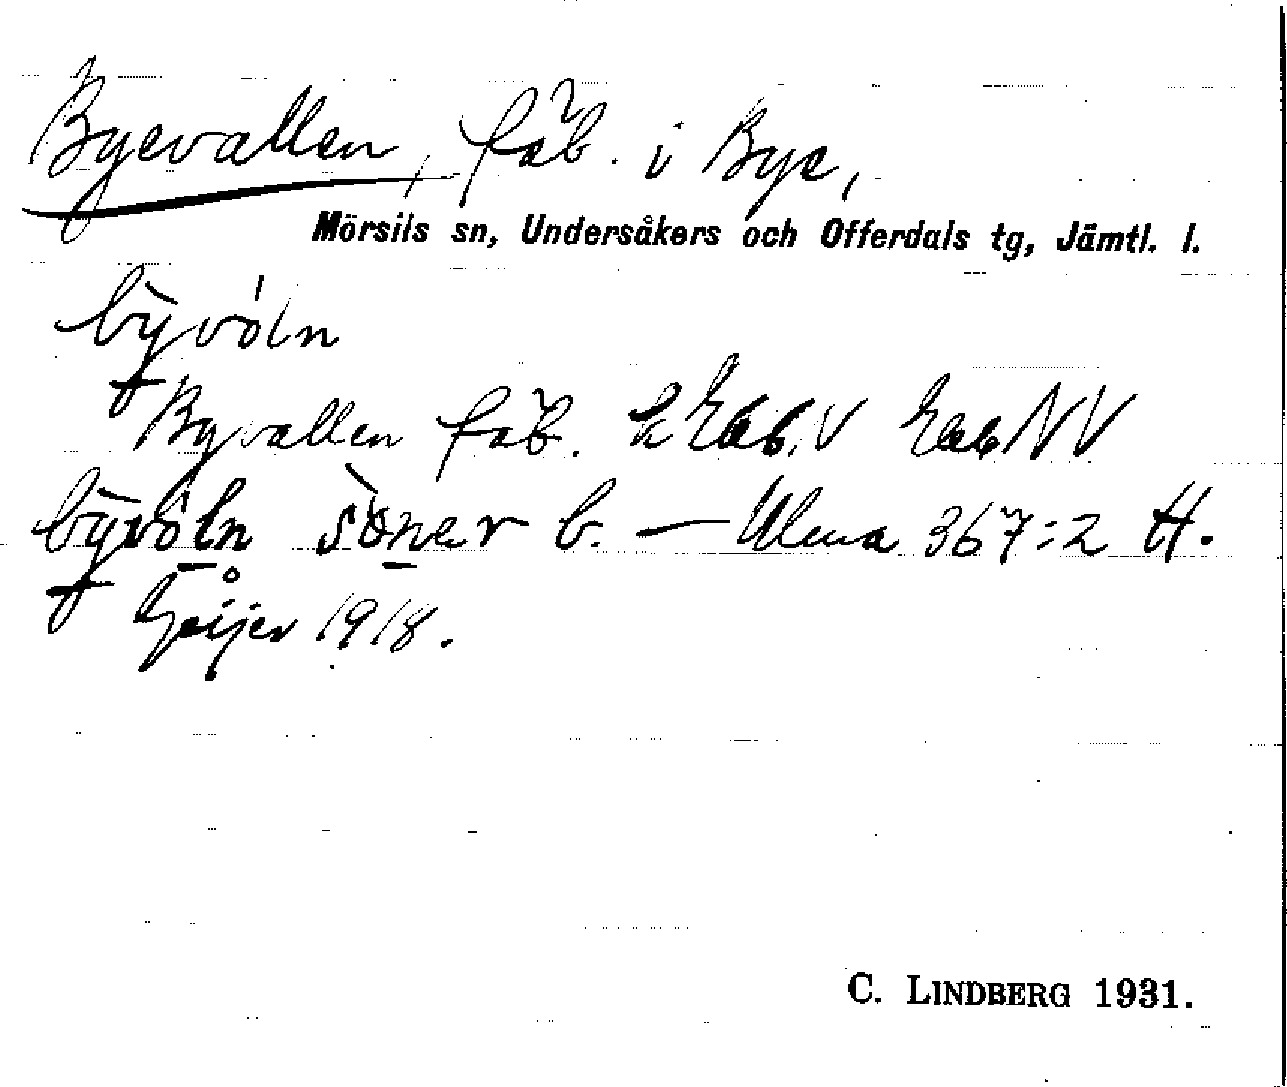 Byevallen, fäb. i Bye,
Mörsils sn, Undersåkers och Offerdals tg, Jämtl. l.
byvöln
Byvallen fäb. 2 Eab.V Eab NV
byvöln söner b. — Ulma 367:2 H.
Geijer 1918.
C. LINDBERG 1931.